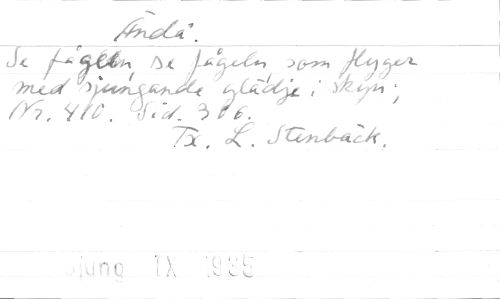 Ändå.
Se fågeln se fågeln, som flyger
med sjungande glädje i skyn;
Nr. 410. Sid. 306.
Tx. L. Stenbäck.
Ljung IX 1935